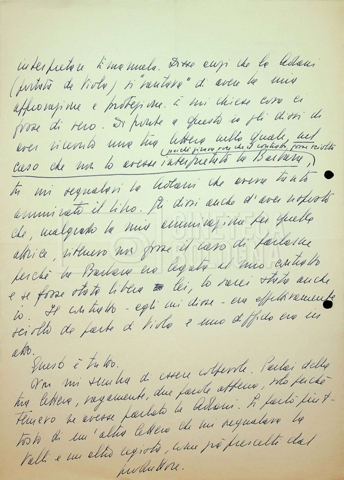 interpretare Emanuela. Disse anzi che la Adani
(portata da Viola) si "vantava" di avere la mia
approvazione e protezione. E mi chiese cosa ci
fosse di vero. Di fronte a questo io gli dissi di
aver ricevuto una tua lettera nella quale, nel
caso che non lo avesse interpretato la Barbara,
tu mi segnalavi la Adani che aveva tanto
ammirato il libro. Gli dissi anche d'aver risposto
che, malgrado la mia ammirazione per quella
attrice, ritenevo non fosse il caso di parlarne
perché la Barbara era legata al suo contratto
e se fosse stata libera lei, lo sarei stato anche
io. Il contratto - egli mi disse - era effettivamente
sciolto da parte di Viola e una diffida era in
atto.
Questo è tutto.
Non mi sembra di essere colpevole. Parlai della
tua lettera, vagamente, due parole appena, solo perché
temevo tu avessi parlato la Adani. Si parlò piut-
tosto di un'altra lettera che mi segnalava la
Valli e un altro regista, come già prescelti dal
produttore.